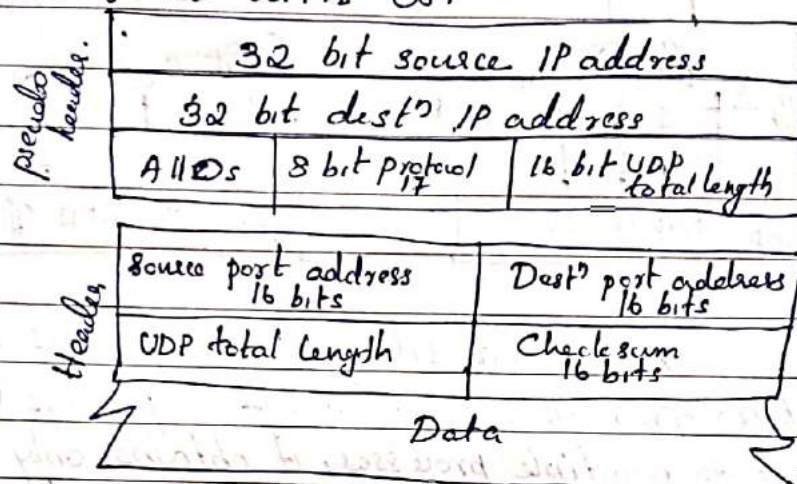 pseudo header.
32 bit source IP address
32 bit destⁿ IP address
All 0s
8 bit protocol
17
16 bit UDP
total length
Header
Source port address
16 bits
Destⁿ port address
16 bits
UDP total length
Checksum
16 bits
Data